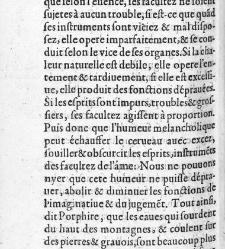 que selon l'essence, les facultez ne soient
sujetes à aucun trouble, si est-ce que quãd
ses instruments sont viciez & mal dispo-
sez, elle opere imparfaitemẽt, & se con-
duit selon le vice de ses organes. Si la cha-
leur naturelle est debile, elle opere len-
tement & tardiuement, si elle est excessi-
ue, elle produit des fonctions déprauées.
Si les esprits sont impurs, troubles & gros-
siers, ses facultez agissent à proportion.
Puis donc que l'humeur melancholique
peut échauffer le cerueau auec excez,
souiller & obscurcir les esprits, instrumẽts
des facultez de l'ame: Nous ne pouuons
nyer que cete humeur ne puisse dépra-
uer, abolir & diminuer les fonctions de
l'imaginatiue & du jugemẽt. Tout ainsi,
dit Porphire, que les eaues qui sourdent
du haut des montagnes, & coulent sur
des pierres & grauois, sont beaucoup plus